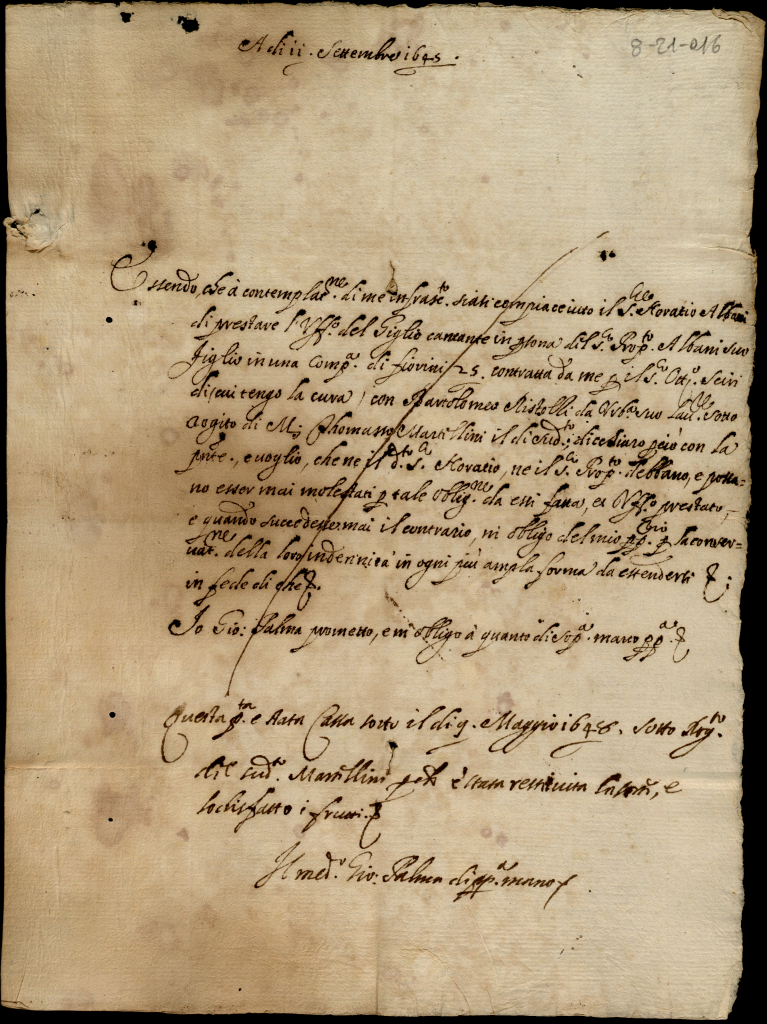 8-21-016
A di 11. Settembre 1645.
Essendo, che à contemplat.ne di me infrascto. siasi compiaciuto il S.r Horatio Albani
di prestare l'Uff.o del Giglio cantante in psona del S.r Albani suo
figlio in una Comp.a di fiorini 25. contratta da me p il S.r Ott.o
di cui tengo la cura, con Bartolomeo da Urb.o suo sotto
rogito di M. Thomasso Martellini il di sud.to; dicchiaro pciò con la
pnte., e voglio, che ne il d.to S.r Horatio, ne il S.r debbano, e possa-
no esser mai molestati p tale oblig.ne da essi fatta, et Uff.o prestato,
e quando succedesse mai il contrario, mi obligo del mio pp.rio p la conser-
vat.ne della loro indennità in ogni più ampla forma da estendersi
in fede di che
Io Gio: Palma prometto, e mi obligo à quanto di sop.a mano pp.a
Questa è stata Cassa sotto il di 9. Maggio 1648. sotto Rog.to
del sud.to Martellini p che è stata restituita la sorte, e
sodisfatto i frutti.
Il med.o Gio: Palma di pp.a mano